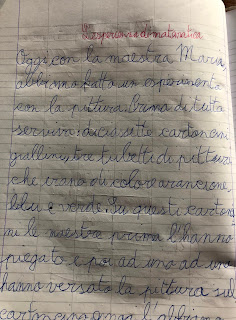 L'esperienza di matematica
Oggi con la maestra Maria
abbiamo fatto un esperimento
con la pittura. Prima di tutto
servivano dei cartoncini
gialli e tre tubetti di pittura
che erano di colore arancione,
blu e verde. Su questi cartonci
ni le maestre prima l'hanno
piegato e poi ad uno ad uno
hanno versato la pittura sul
cartoncino l'abbiamo